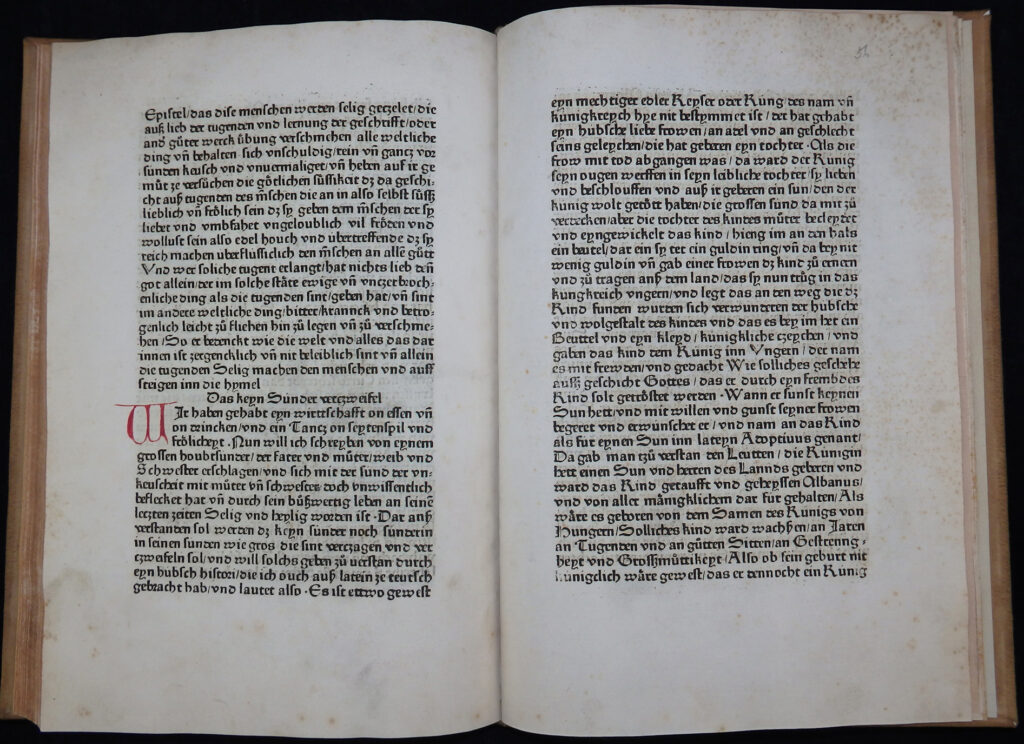 Epistel/das dise menschen werden selig geczelet/die
auß lich der tugenden vnd lernung der geschrifft/oder
and gůter werck ůbung verschmehen alle weltliche
ding vñ behalten sich vnschuldig/rein vñ gancz vor
sunden keusch vnd vnuermaliget/vñ heben auf ir ge
můt ze versůchen die gőtlichen sůssikeit dz da geschi-
cht auß tugenden des m̃schen die an in also selbst sůss
lieblich vñ frőlich sein dz sy geben dem m̃schen der sy
liebet vnd vmbfahet vngeloublich vil frőden vnd
wollust sein also edel houch vnd ubertreffende dz sy
reich machen uberflussiclich den m̃schen an alle gůt
Vnd wer soliche tugent erlangt/hat nichts lieb deñ
got allein/der im solche ståte ewige vñ vnczerbroch-
enliche ding als die tugenden sint/geben hat/vñ sint
im andere weltliche ding/bitter/kranck vnd betro-
genlich leicht zu fliehen hin zu legen vñ zů verschme-
hen/So er betenckt wie die welt und alles das dar
innen ist zergencklich vñ nit beleiblich sint vñ allein
die tugenden Selig machen den menschen und auff
steigen inn die hymel
Das keyn Sunder verczweifel
WIr haben gehabt eyn wirttschafft on essen vñ
on trincken/vnd ein Tancz on seytenspil vnd
frőlicheyt · Nun will ich schreyben von eynem
grossen houbtsunder/der fater vnd můter/weib vnd
Schwester erschlagen/vnd sich mit der sund der vn-
keuscheit mit můter vñ schwester doch vnwissentlich
beflecket hat vñ durch sein bůßwertig leben an seinē
leczten zeiten Selig vnd heylig worden ist · Dar auß
verstanden sol werden dz keyn sunder noch sunderin
in seinen sunden wie gros die sint verczagen vnd ver
czweifeln sol/vnd will solchs geben zů verstan durch
eyn hubsch histori/die ich ouch auß latein ze teutsch
gebracht hab/vnd lautet also · Es ist ettwo gewest
51
eyn mechtiger edler Keyser oder Kůng des nam vñ
kůnigkreych hye nit bestymmet ist/der hat gehabt
eyn hubsche liebe frowen/an atel vnd an geschlecht
seins geleychen/die hat geberen eyn tochter · Als die
frow mit tod abgangen was/da ward der Kůnig
seyn ougen werffen in seyn leibliche tochter/sy lieben
vnd beschlouffen vnd auß ir geberen ein sun/den der
kůnig wolt getőtt haben/die grossen sund da mit zů
vertecken/aber die tochter des kindes můter becleydet
vnd eyngewickelt das kind/hieng im an den hals
ein beutel/dar ein sy tet ein guldin ring/vñ da bey nit
wenig guldin vñ gab einer frowen dz kind zů ernern
vnd zů tragen auß dem land/das sy nun trůg in das
kungkreich vngern/vnd legt das an den weg die dz
Kind funden wurden sich verwunderen der hubsche
vnd wolgestalt des kindes vnd das es bey im het ein
Beuttel vnd eyn kleyd/kůnigkliche czeychen/vnd
gaben das kind dem Kůnig inn Vngern/der nam
es mit frewden/vnd gedacht Wie solliches geschehe
auß geschicht Gottes/das er durch eyn frembdes
Kind solt getrőstet werden · Wann er sunst keynen
Sun hett/vnd mit willen vnd gunst seyner frowen
begeret vnd erwunschet er/vnd nam an das Kind
als fur eynen Sun inn lateyn Adoptiuus genant/
Da gab man tzů verstan den Leutten/die Kůnigin
hett einen Sun vnd herren des Lannds geberen vnd
ward das Kind getaufft vnd geheyssen Albanus/
vnd von aller månigklichem dar fur gehalten/Als
wåre es geboren von dem Samen des Kůnigs von
Hungern/Solliches kind ward wachßen/an Jaren
an Tugenden vnd an gůtten Sitten/an Gestrenng-
heyt vnd Großmůttikeyt/Also ob sein geburt nit
kunigclich wåre gewest/das er dennocht ein Kůnig